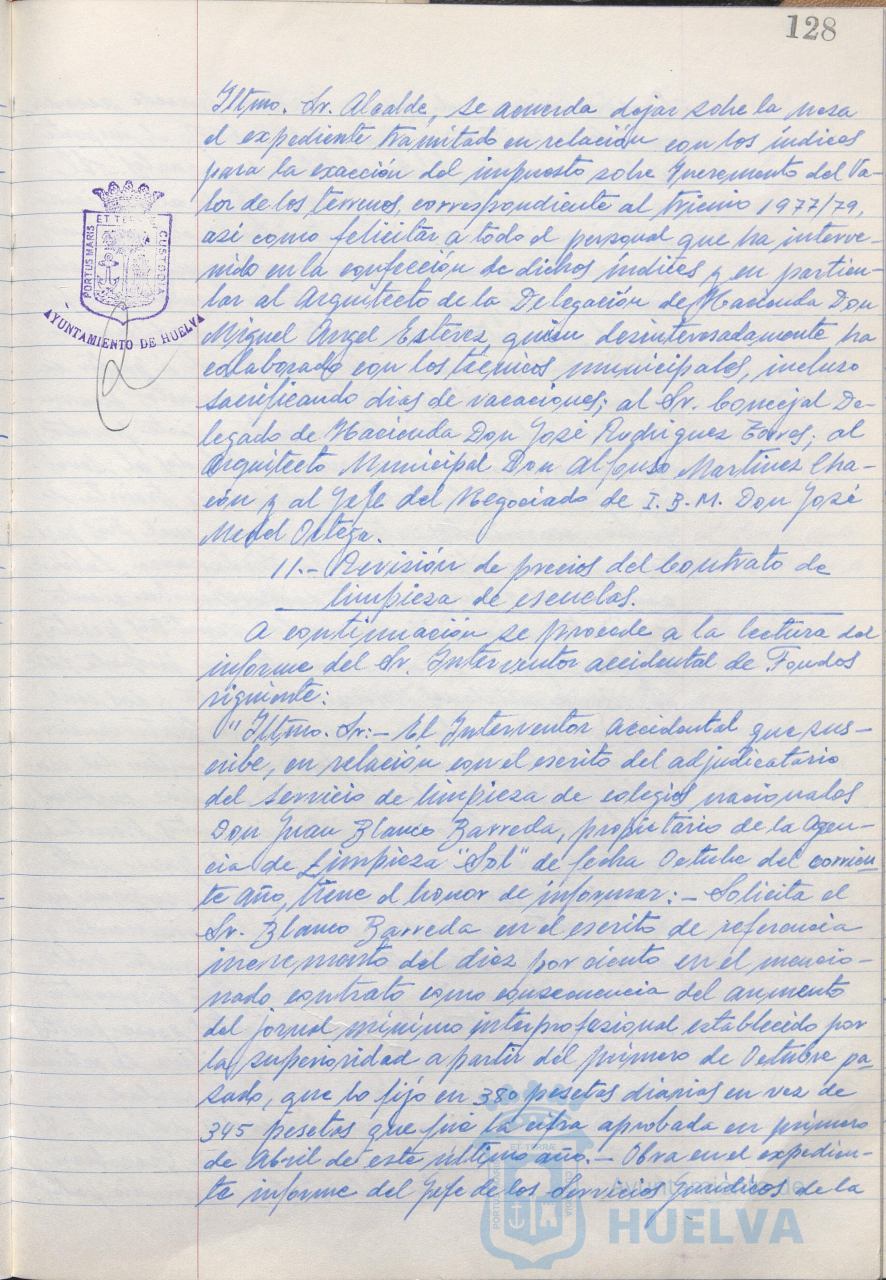 128
Iltmo. Sr. Alcalde, se acuerda dejar sobre la mesa
el expediente tramitado en relación con los índices
para la exacción del impuesto sobre Incremento del Va-
lor de los terrenos, correspondiente al trienio 1977/79,
así como felicitar a todo el personal que ha interve-
nido en la confección de dichos índices y en particu-
lar al Arquitecto de la Delegación de Hacienda Don
Miguel Angel Estévez, quien desinteresadamente ha
colaborado con los técnicos municipales, incluso
sacrificando dias de vacaciones; al Sr. Concejal De-
legado de Hacienda Don José Rodríguez Torres; al
Arquitecto Municipal Don Alfonso Martínez Cha-
cón y al Jefe del Negociado de I.B.M. Don José
Ortega.
11.- Revisión de precios del Contrato de
limpieza de escuelas.
A continuación se procede a la lectura del
informe del Sr. Interventor accidental de Fondos
siguiente:
"Iltmo. Sr:- El Interventor accidental que sus-
cribe, en relación con el escrito del adjudicatario
del servicio de limpieza de colegios nacionales
Don Juan Blanco Barreda, propietario de la Agen-
cia de Limpieza "Sol" de fecha Octubre del corrien-
te año, tiene el honor de informar:- Solicita el
Sr. Blanco Barreda en el escrito de referencia
incremento del diez por ciento en el mencio-
nado contrato como consecuencia del aumento
del jornal mínimo interprofesional establecido por
la superioridad a partir del primero de Octubre pa-
sado, que lo fijó en 380 pesetas diarias en vez de
345 pesetas que fué la cifra aprobada en primero
de Abril de este último año.- Obra en el expedien-
te informe del Jefe de los Servicios Jurídicos de la
PORTUS MARIS ET TERRAE CUSTODIA
AYUNTAMIENTO DE HUELVA
PORTUS MARIS ET TERRAE CUSTODIA
Ayuntamiento de
HUELVA